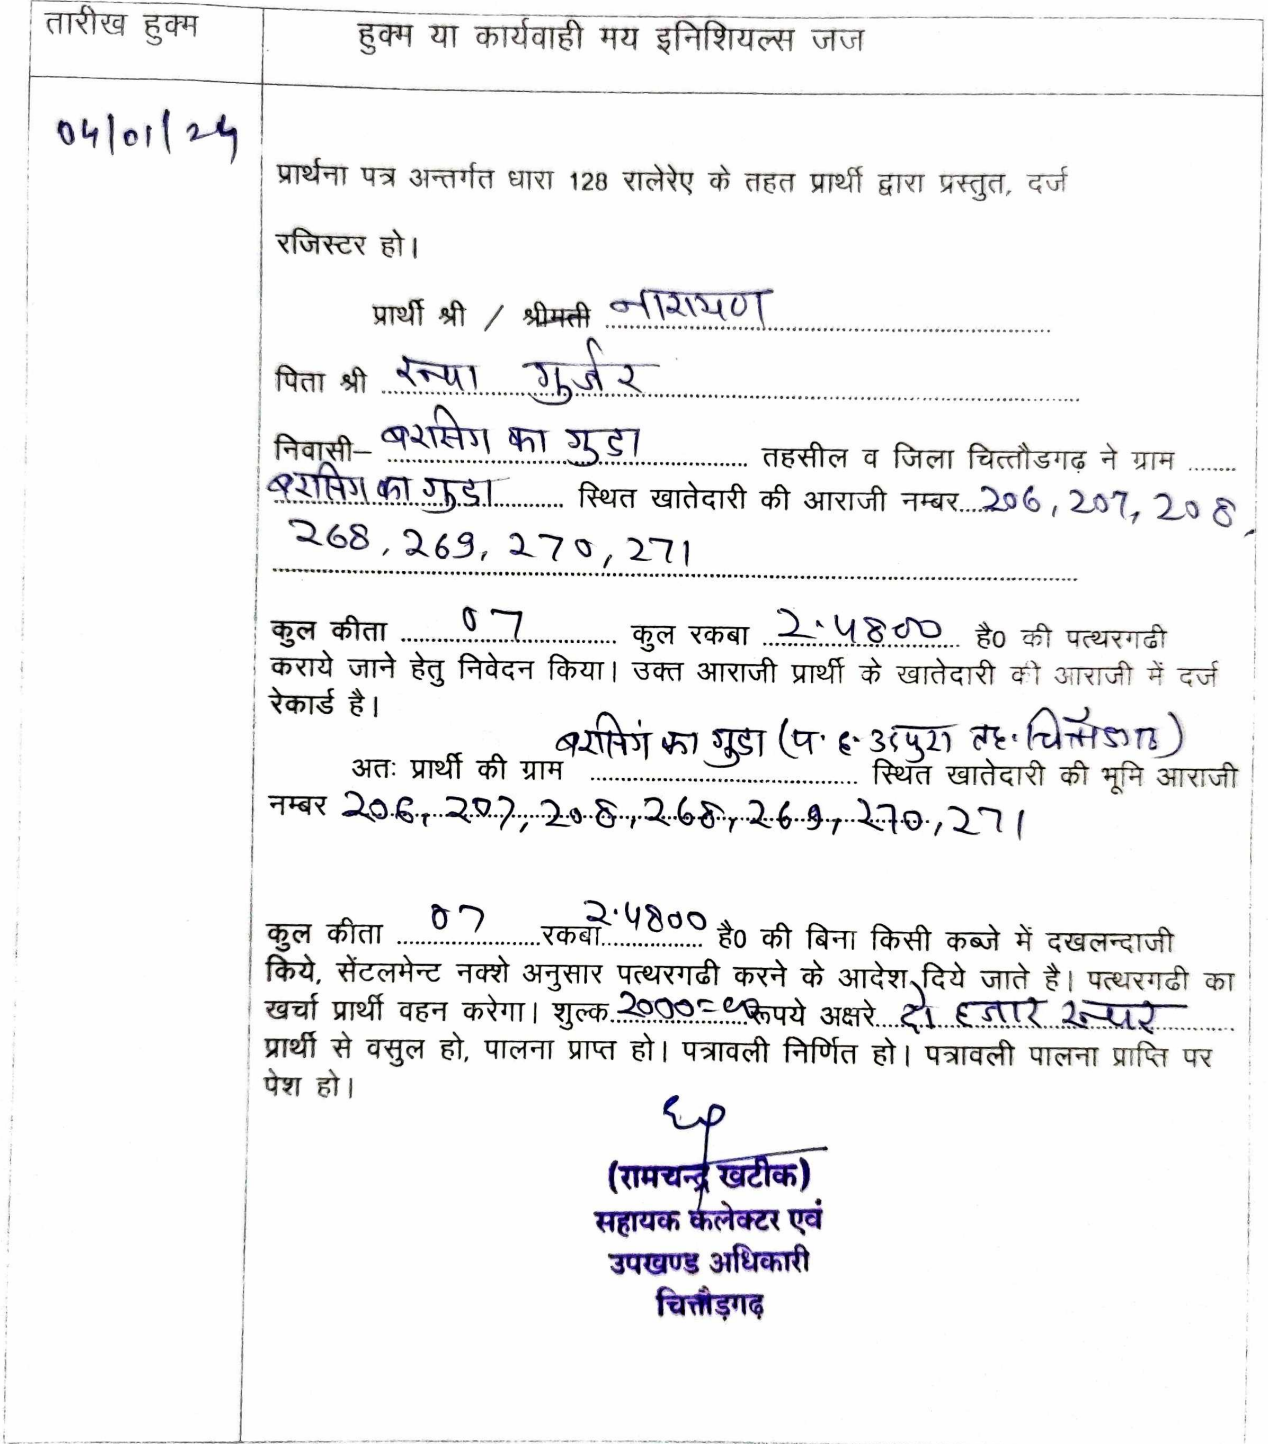 तारीख हुक्म
हुक्म या कार्यवाही मय इनिशियल्स जज
04/01/24
प्रार्थना पत्र अन्तर्गत धारा 128 रालेरेए के तहत प्रार्थी द्वारा प्रस्तुत, दर्ज
रजिस्टर हो।
प्रार्थी श्री / श्रीमती नारायण
पिता श्री रूपा गुर्जर
निवासी– बरसिंग का गुडा तहसील व जिला चित्तौडगढ़ ने ग्राम ........
बरसिंग का गुडा स्थित खातेदारी की आराजी नम्बर....206, 207, 208,
268, 269, 270, 271
कुल कीता 07 कुल रकबा 2.4800 है0 की पत्थरगढी
कराये जाने हेतु निवेदन किया। उक्त आराजी प्रार्थी के खातेदारी की आराजी में दर्ज
रेकार्ड है।
बरसिंग का गुडा (प. ह. तह. चित्तौडगढ)
अतः प्रार्थी की ग्राम ........ स्थित खातेदारी की भूमि आराजी
नम्बर 206, 207, 208, 268, 269, 270, 271
कुल कीता 07 रकबा 2.4800 है0 की बिना किसी कब्जे में दखलन्दाजी
किये, सेंटलमेन्ट नक्शे अनुसार पत्थरगढी करने के आदेश दिये जाते है। पत्थरगढी का
खर्चा प्रार्थी वहन करेगा। शुल्क 2000= रूपये अक्षरे दो हजार रूपए
प्रार्थी से वसुल हो, पालना प्राप्त हो। पत्रावली निर्णित हो। पत्रावली पालना प्राप्ति पर
पेश हो।
(रामचन्द्र खटीक)
सहायक कलेक्टर एवं
उपखण्ड अधिकारी
चित्तौड़गढ़